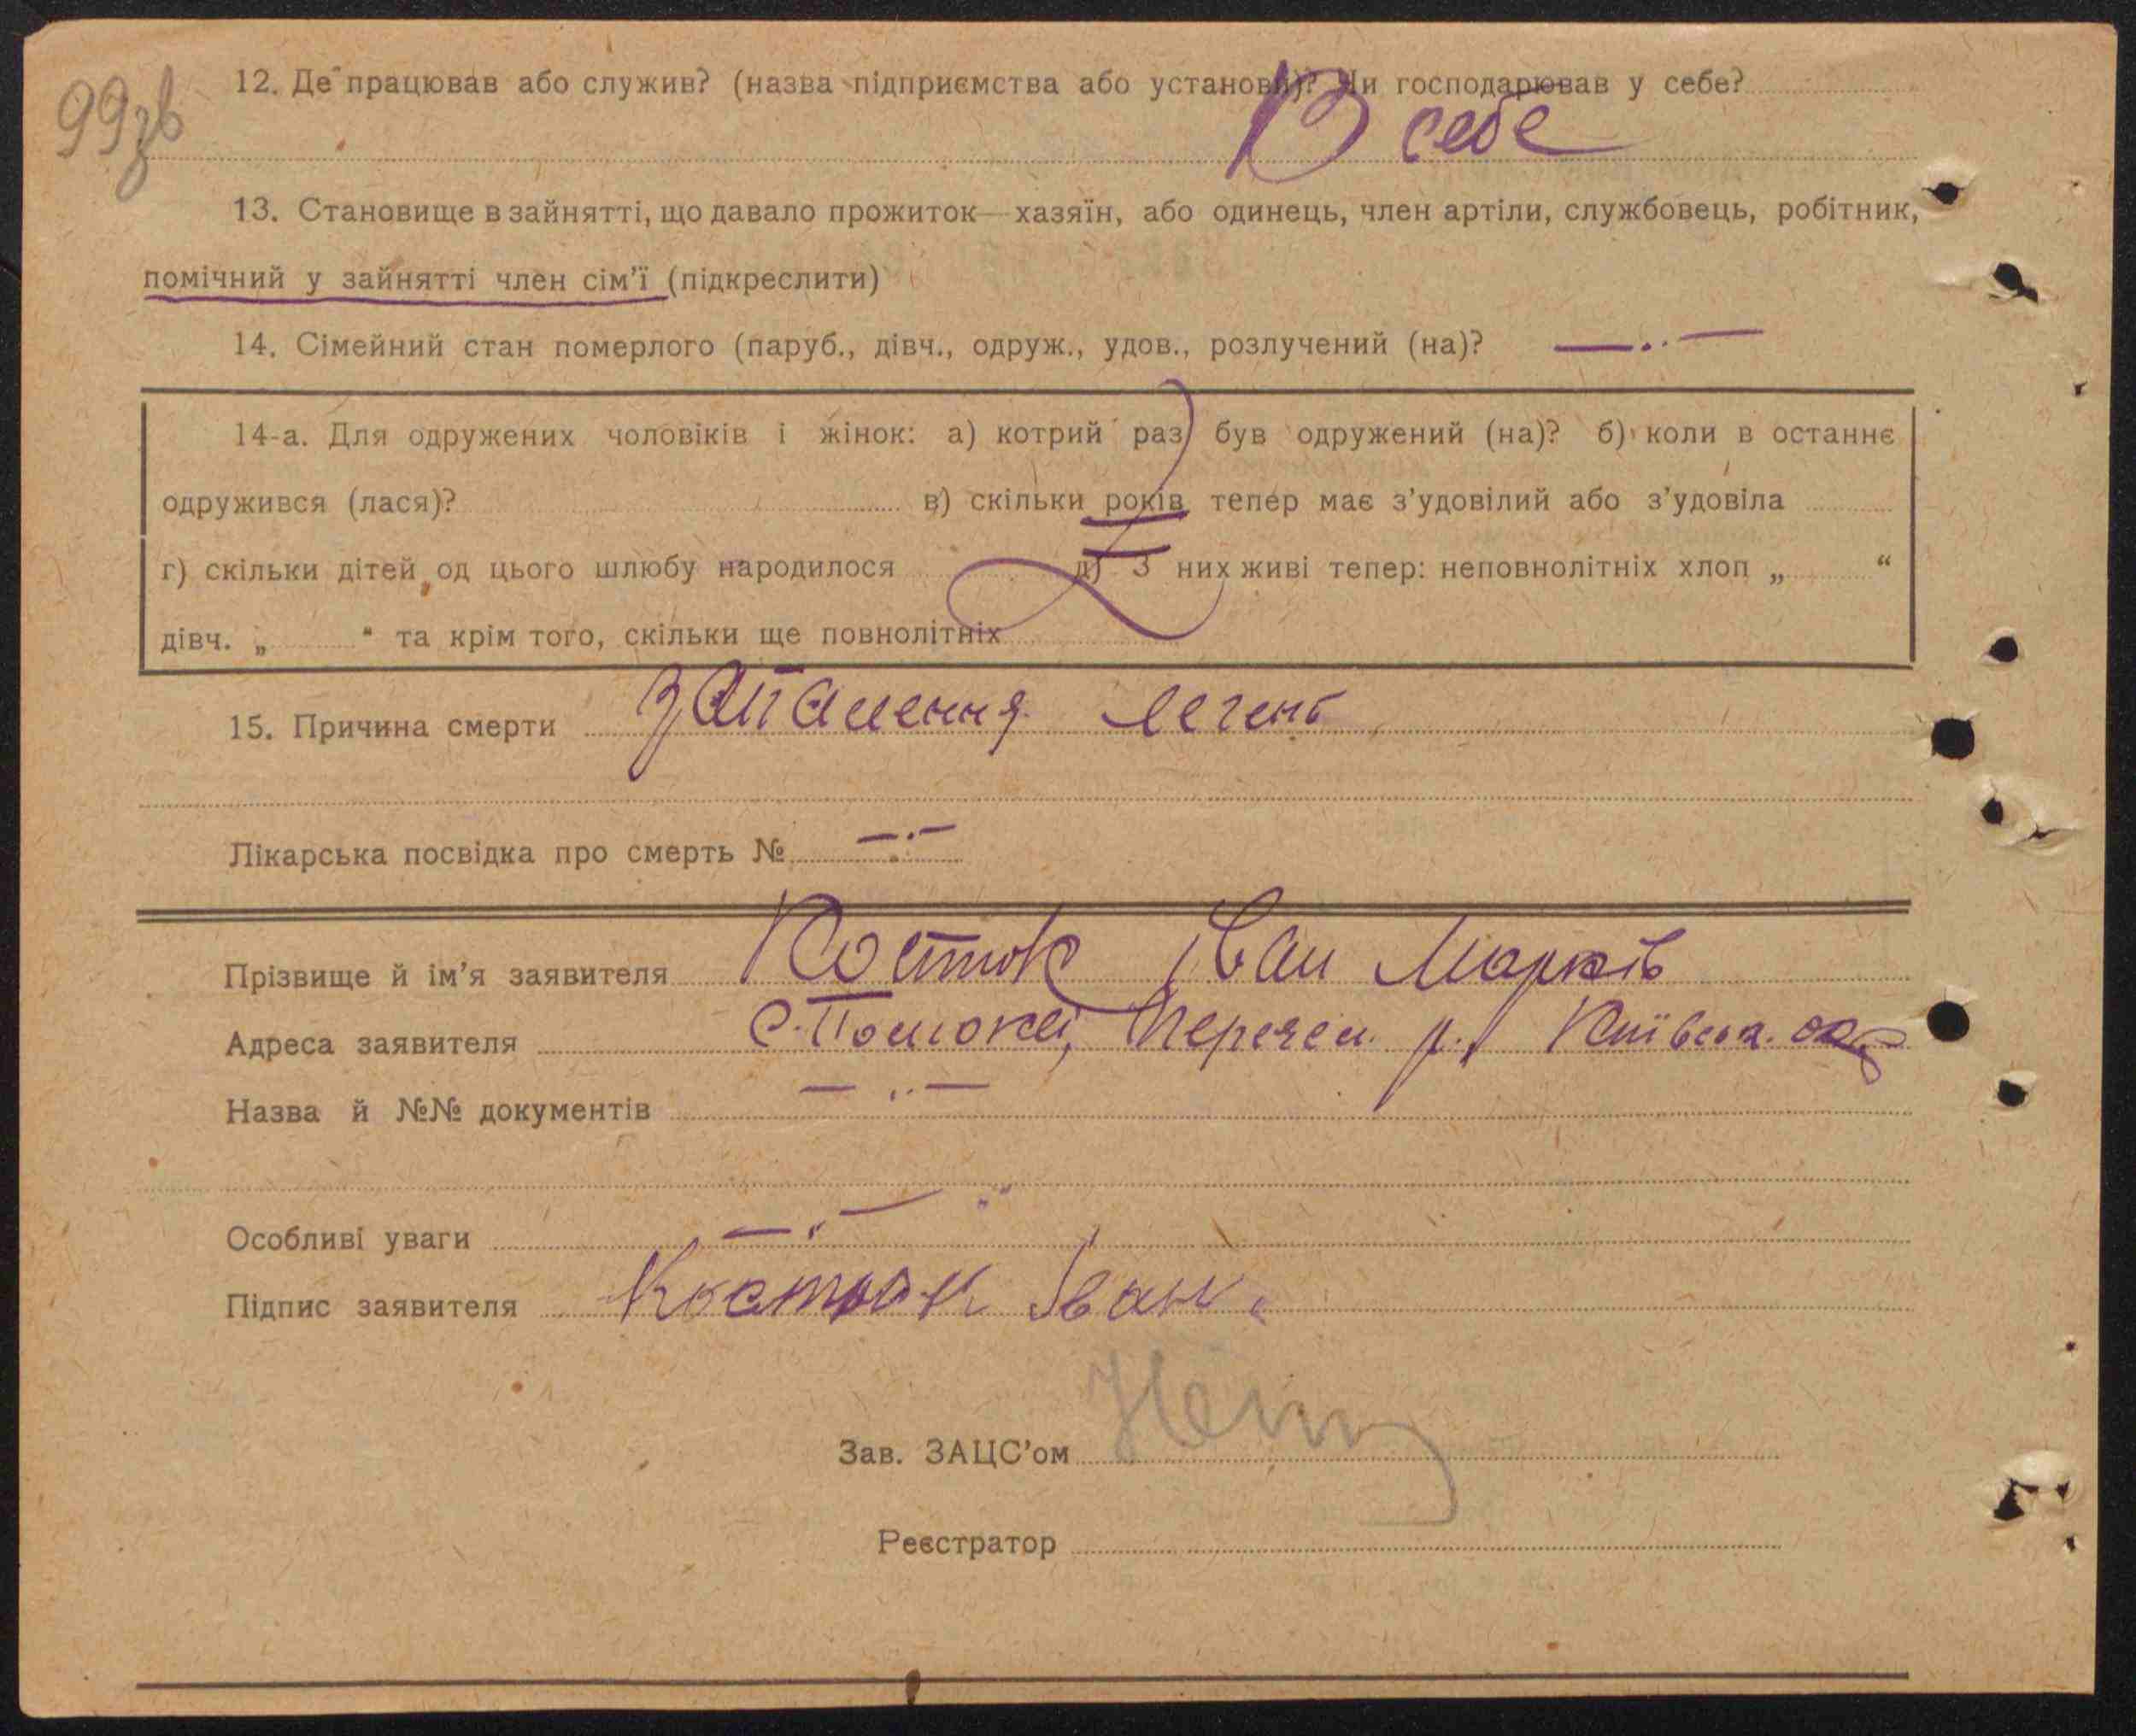 99зв
12. Де працював або служив? (назва підприємства або установи)? Чи господарював у себе?
В себе
13. Становище в зайнятті, що давало прожиток—хазяїн, або одинець, член артіли, службовець, робітник,
помічний у зайнятті член сім'ї (підкреслити)
14. Сімейний стан померлого (паруб., дівч., одруж., удов., розлучений (на)? — .. —
14-а. Для одружених чоловіків і жінок: а) котрий раз був одружений (на)? б) коли в останнє
одружився (лася)? в) скільки років тепер має з'удовілий або з'удовіла
г) скільки дітей од цього шлюбу народилося д) З них живі тепер: неповнолітніх хлоп „ “
дівч. „ “ та крім того, скільки ще повнолітніх
15. Причина смерти запалення легень
Лікарська посвідка про смерть № — .. —
Прізвище й ім'я заявителя Костюк Іван Марків
Адреса заявителя с. р., Київськ. обл
Назва й №№ документів — .. —
Особливі уваги — .. —
Підпис заявителя Костюк Іван
Зав. ЗАЦС'ом
Реєстратор